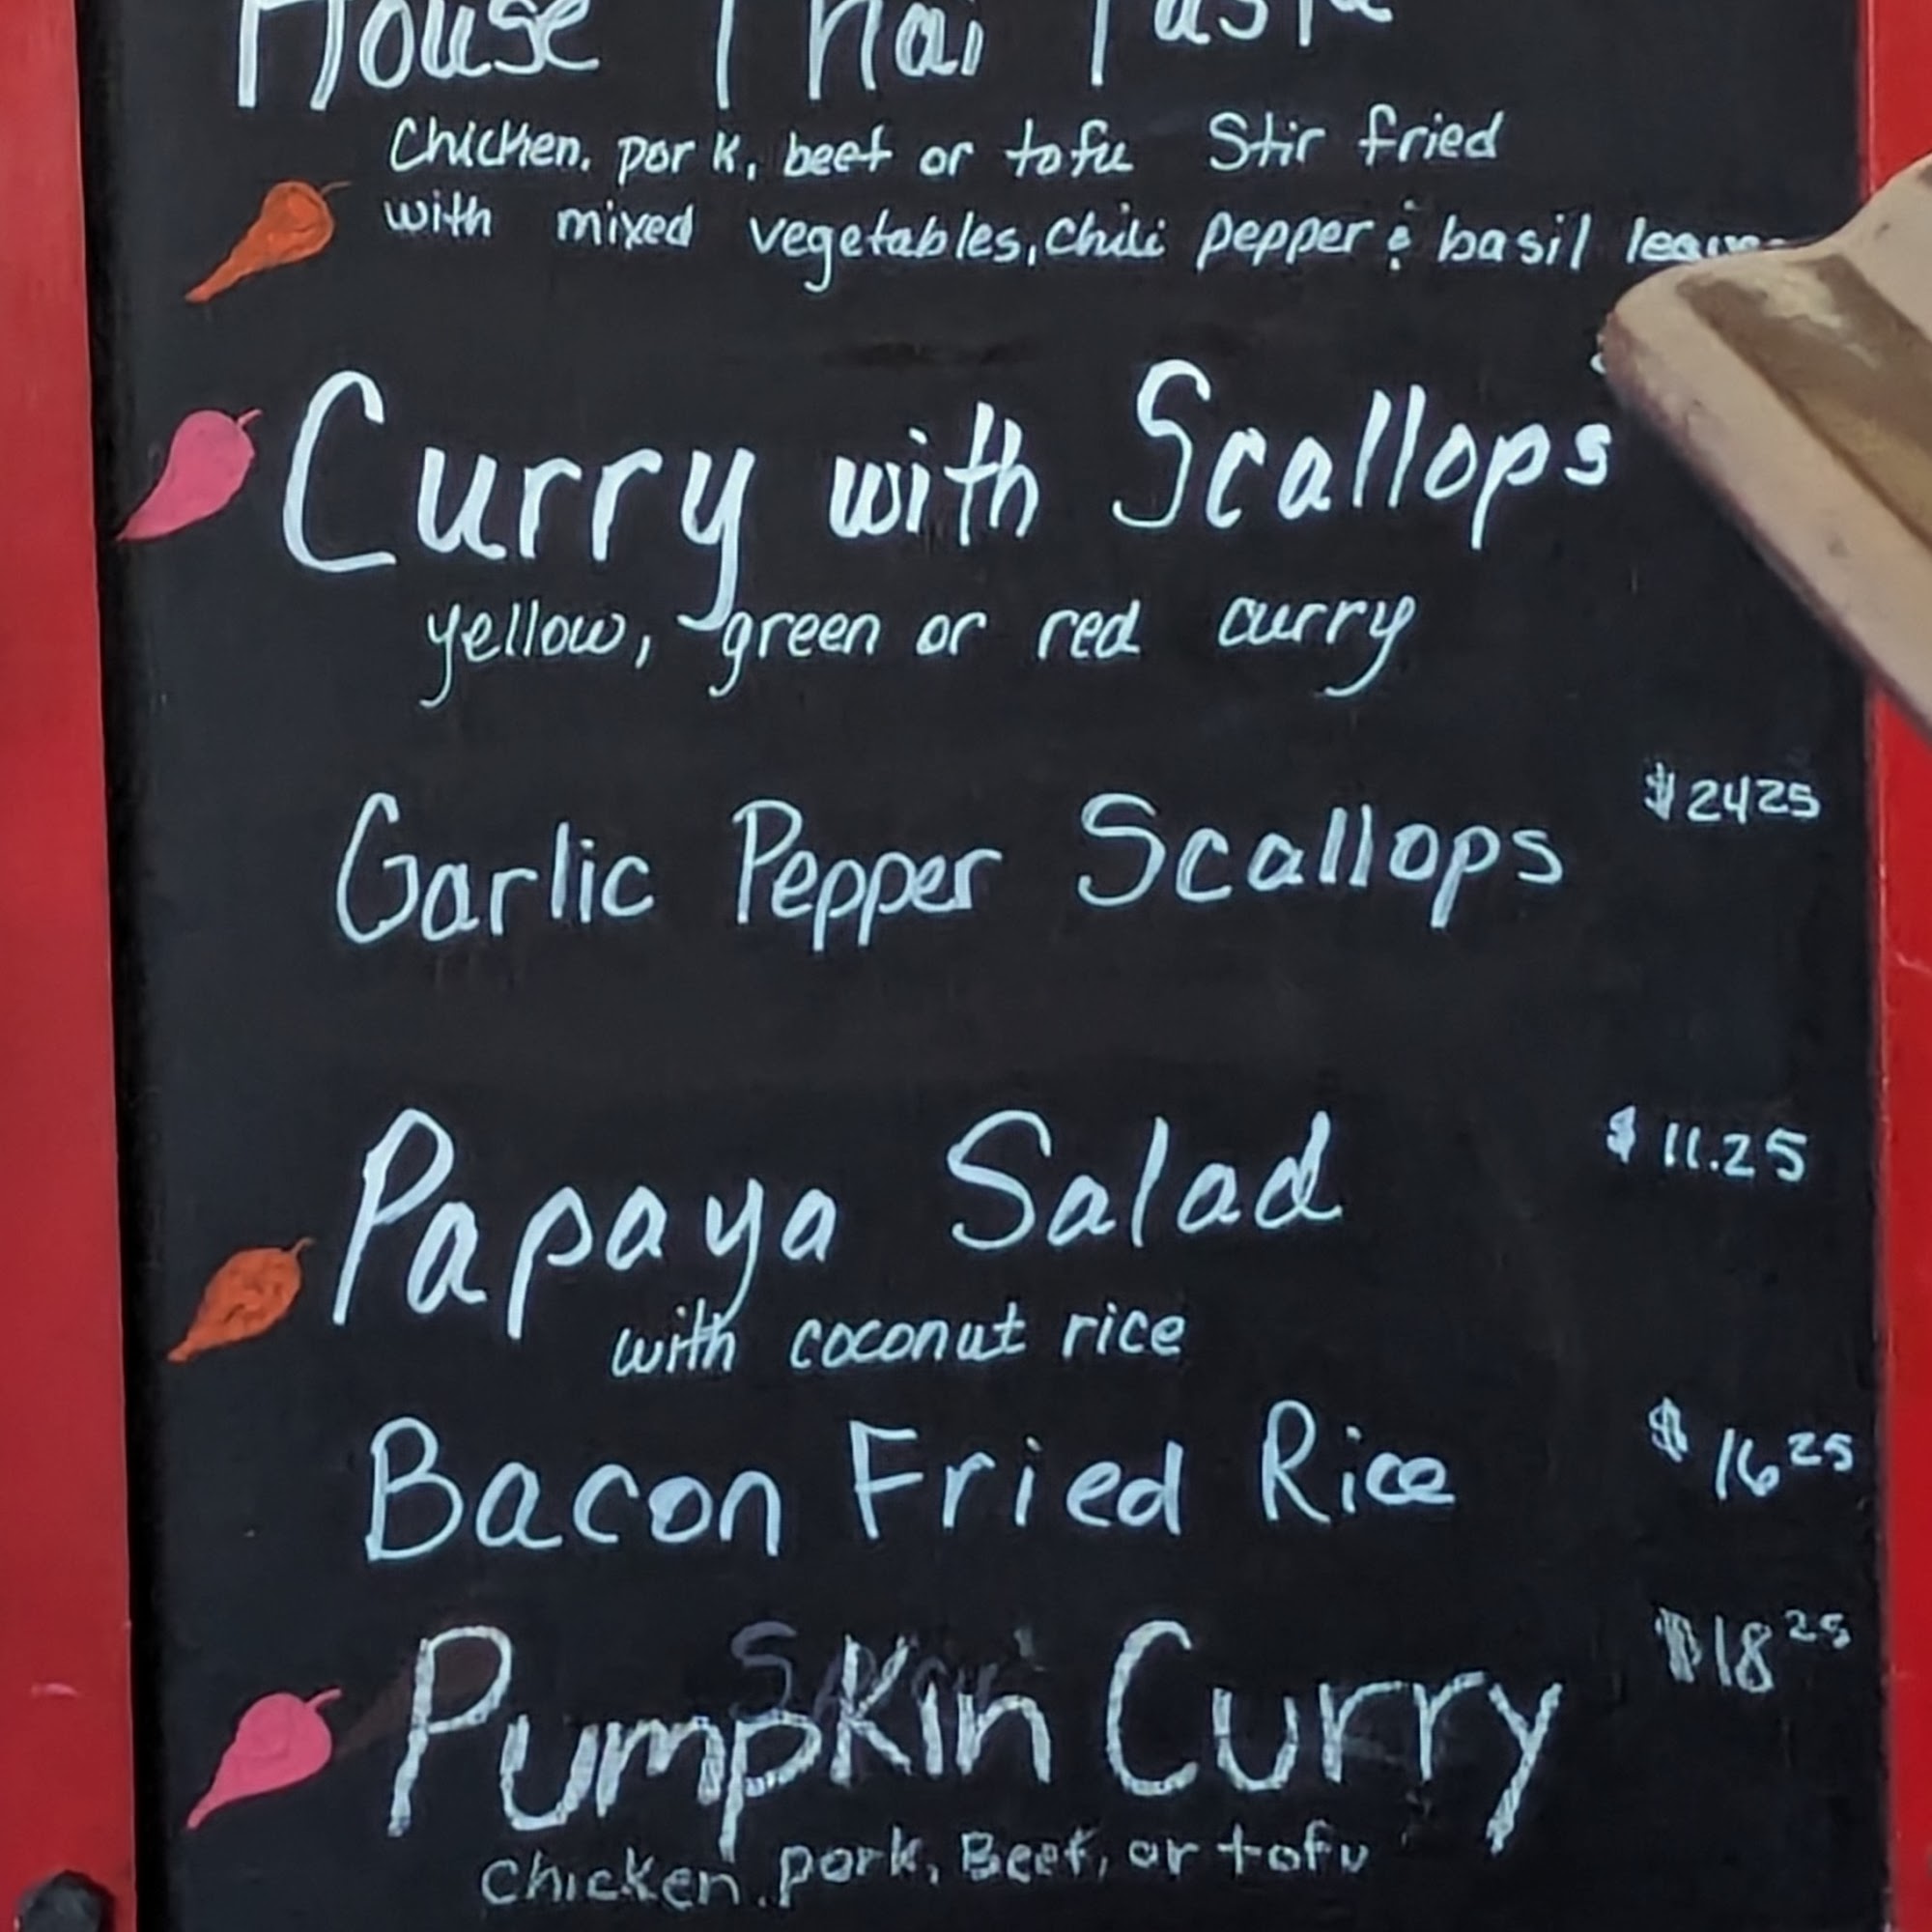 House Thai Pasta
Chicken, pork, beef or tofu Stir fried
with mixed vegetables, chili pepper & basil leaves
Curry with Scallops
yellow, green or red curry
Garlic Pepper Scallops $2425
Papaya Salad $11.25
with coconut rice
Bacon Fried Rice $1625
Pumpkin Curry $1825
Chicken, pork, Beef, or tofu